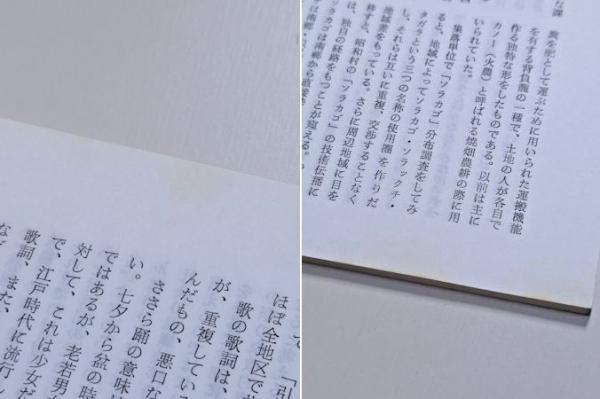 て、「引
ほぼ全地区で
歌の歌詞は、
が、重複している
んだもの、悪口な
ささら踊の意味
い。七夕から盆の時
ではあるが、老若男女
対して、これは少女だ
で、江戸時代に流行し
歌詞、また、
など
な課
糞を肥として運ぶために用いられた運搬機能
を有する背負籠の一種で、土地の人が各自で
作る独特な形をしたものである。以前は主に
カノー(火農)と呼ばれる焼畑農耕の際に用
いられていた。
集落単位で「ソラカゴ」分布調査をしてみ
ると、地域によってソラカゴ・ソラックチ・
タガラという三つの名称の使用圏を作りだ
し、それらは互いに重複、交渉することなく
地域差をもっている。さらに周辺地域に目を
移すと、昭和村の「ソラカゴ」の技術伝播に
は、独自の経路をもつことが窺える。
ソラカゴは南郷から直接